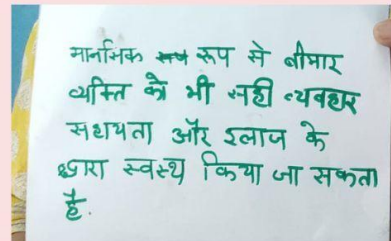 मानसिक रूप से बीमार
व्यक्ति को भी सही व्यवहार
सहायता और इलाज के
द्वारा स्वस्थ किया जा सकता
है.